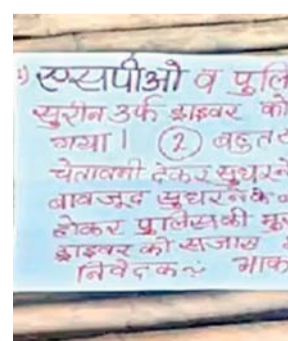 1) एसपीओ व पुलि
सुरीन उर्फ ड्राइवर को
गया। (2) बहुत
चेतावनी देकर सुधरने
बावजूद सुधरने के
होकर पुलिस की मु
ड्राइवर को सजाए
निवेदक :- भाक